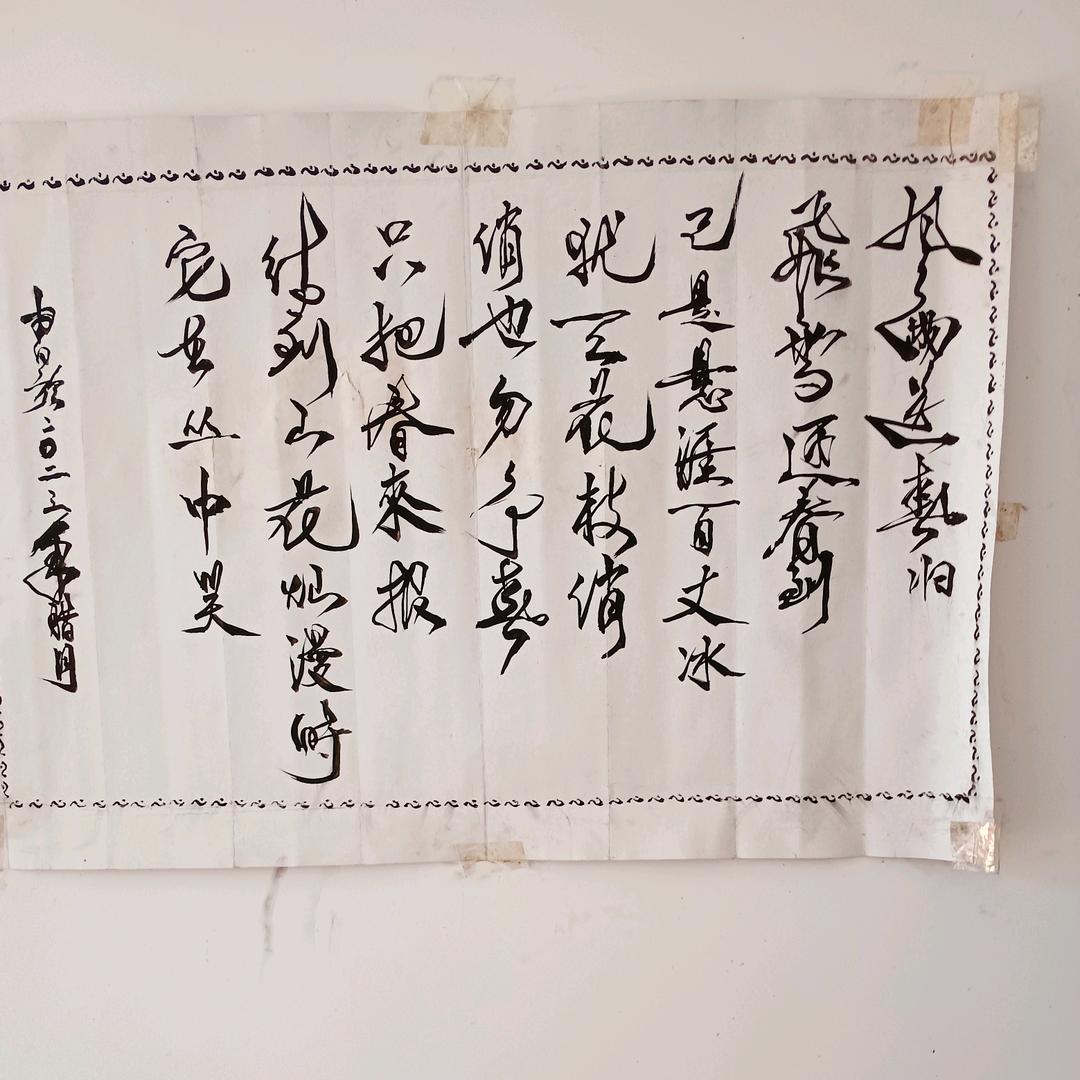 风雨送春归
飞雪迎春到
已是悬涯百丈冰
犹有花枝俏
俏也勿争春
只把春來报
待到山花灿漫時
它在丛中笑
二〇二三年腊月